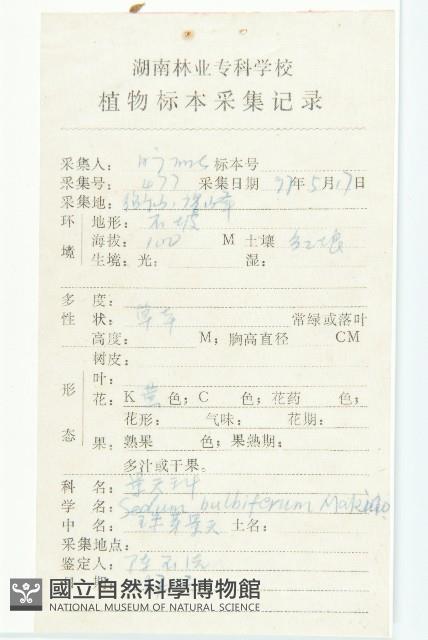 湖南林业专科学校
植物标本采集记录
采集人： 标本号
采集号： 477 采集日期 年5月17日
采集地：
环境 地形：
海拔： 100 M 土壤 红壤
生境：光： 湿：
多度：
性状： 草本 常绿或落叶
高度： M；胸高直径 CM
树皮：
形态 叶：
花：K 黄色；C 色；花药 色；
花形： 气味： 花期：
果：熟果 色；果熟期：
多汁或干果。
科名： 景天科
学名： Sedum bulbiferum Makino.
中名： 珠芽景天 土名：
采集地点：
鉴定人：
國立自然科學博物館
NATIONAL MUSEUM OF NATURAL SCIENCE